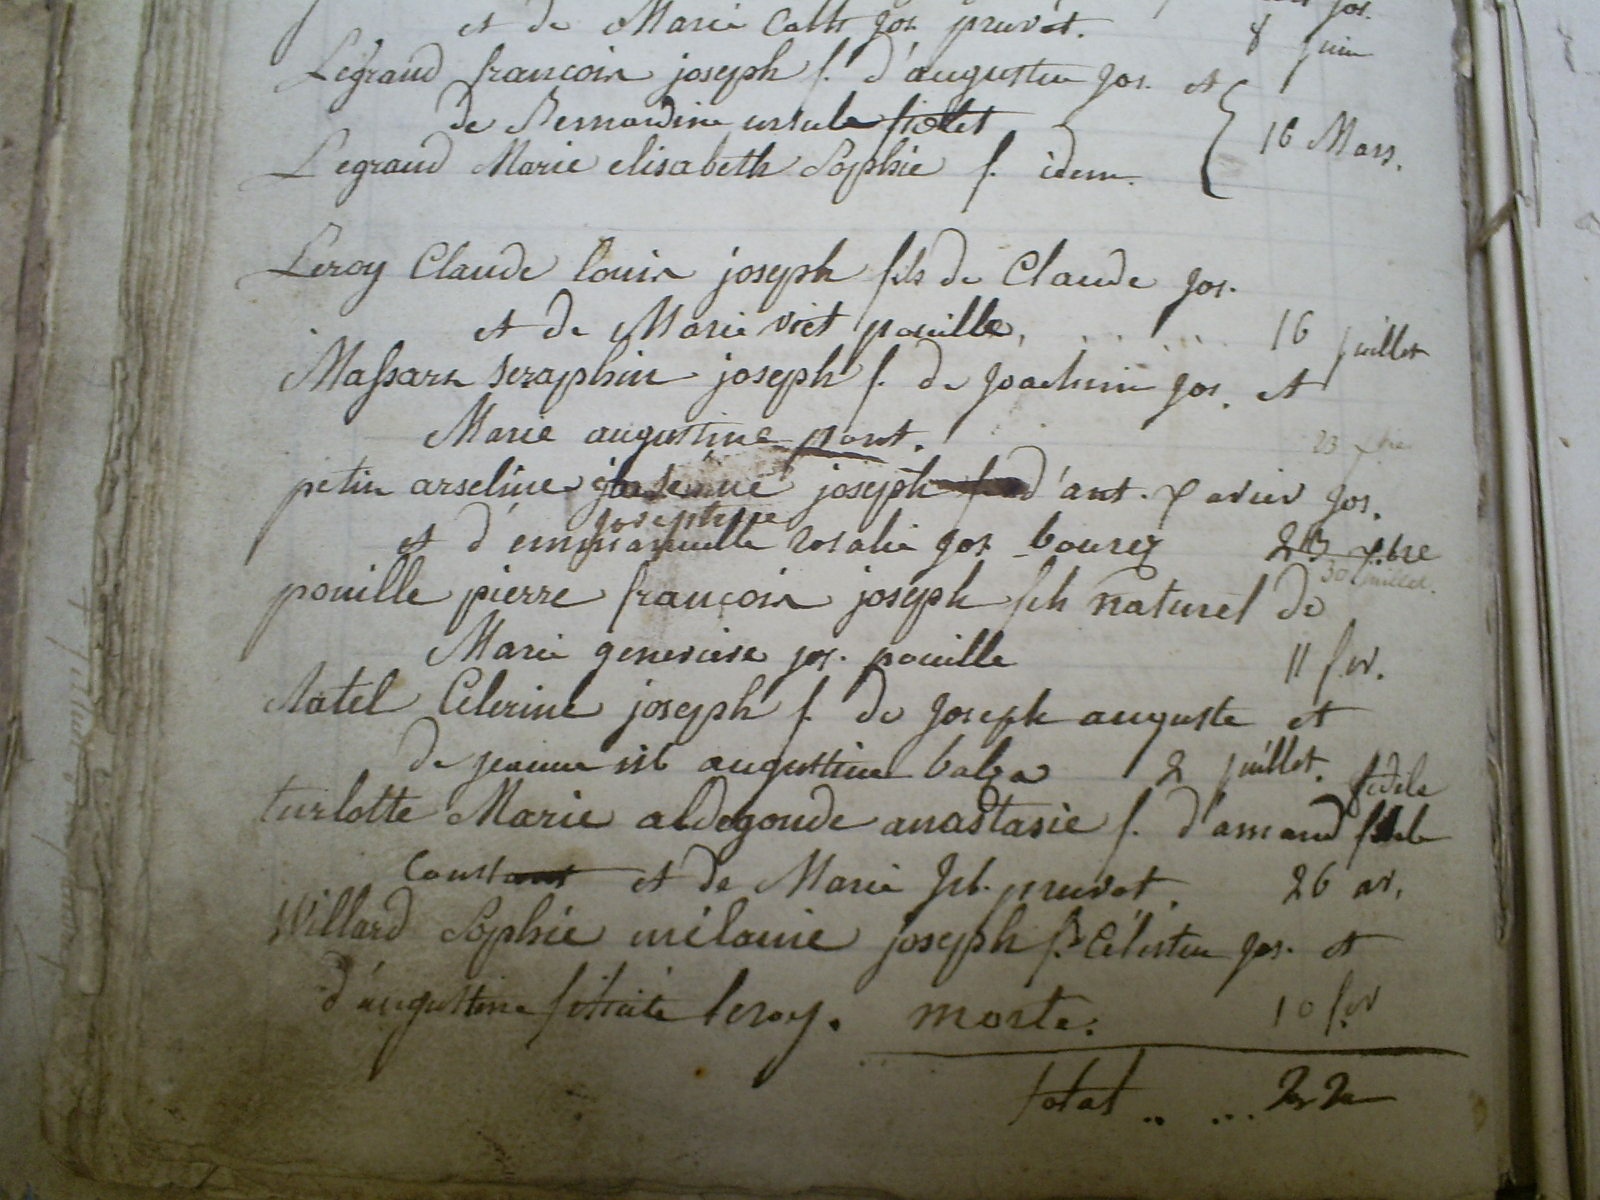 et de Marie Cath Jos. pruvot. 8 juin
Legrand francois joseph f. d'augustin Jos. et
de Bernardine ursule fiolet
16 Mars.
Legrand Marie elisabeth Sophie f. idem.
Leroy Claude louis joseph fils de Claude Jos.
et de Marie vict pouille, ...... 16 juillet
Massars seraphin joseph f. de Joachim Jos. et
Marie augustine pont. 23 xbre
petin arseline joseph d'ant. xavier Jos.
josephine
et d'emmanuelle rosalie Jos. bourez 23 xbre
30 juillet.
pouille pierre francois joseph fils naturel de
Marie genevieve jos. pouille 11 fev.
Ratel Celerine joseph f. de Joseph auguste et
de jeanne augustine balza 2 juillet.
fidele
turlotte Marie aldegonde anastasie f. d'amand
Constant et de Marie Jh. pruvot. 26 av.
Willard Sophie mélanie joseph f. Célestin Jos. et
d'augustine félicité leroy. morte. 10 fev
total .. ... 22